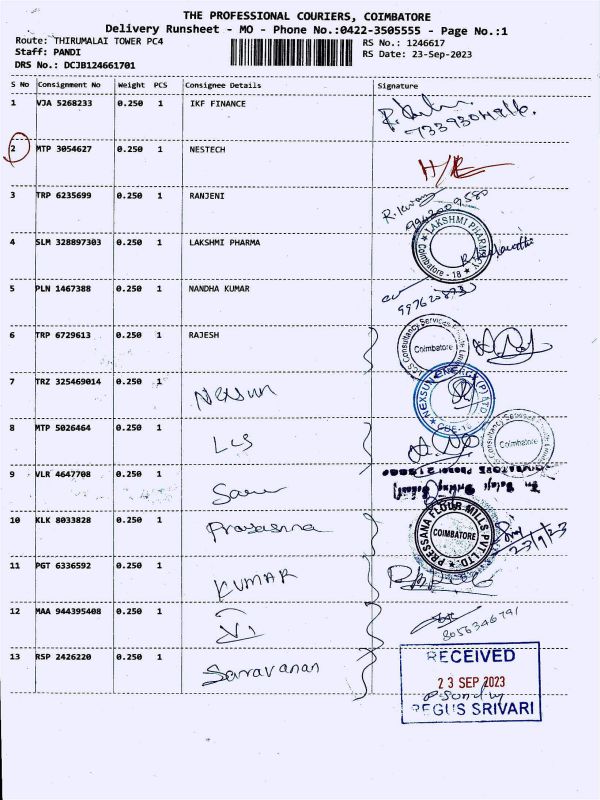 THE PROFESSIONAL COURIERS, COIMBATORE
Delivery Runsheet - MO - Phone No.:0422-3505555 - Page No.:1
Route: THIRUMALAI TOWER PC4 RS No.: 1246617
Staff: PANDI RS Date: 23-Sep-2023
DRS No.: DCJB124661701
S No Consignment No Weight PCS Consignee Details Signature
1 VJA 5268233 0.250 1 IKF FINANCE
2 MTP 3054627 0.250 1 NESTECH
3 TRP 6235699 0.250 1 RANJENI
4 SLM 328897303 0.250 1 LAKSHMI PHARMA
LAKSHMI PHARMACY
Coimbatore - 18
5 PLN 1467388 0.250 1 NANDHA KUMAR
6 TRP 6729613 0.250 1 RAJESH
LCS Consultancy Services Private
Coimbatore
7 TRZ 325469014 0.250 1 Nexsun
NEXSUN ENERGY (P) LTD
CBE-18
8 MTP 5026464 0.250 1 LCS
Coimbatore
9 VLR 4647708 0.250 1
10 KLK 8033828 0.250 1 Prasanna
PRESSANA FLOUR MILLS PVT LTD
COIMBATORE
23/9/23
11 PGT 6336592 0.250 1 KUMAR
12 MAA 944395408 0.250 1
8056346791
13 RSP 2426220 0.250 1 Saravanan
RECEIVED
23 SEP 2023
REGUS SRIVARI